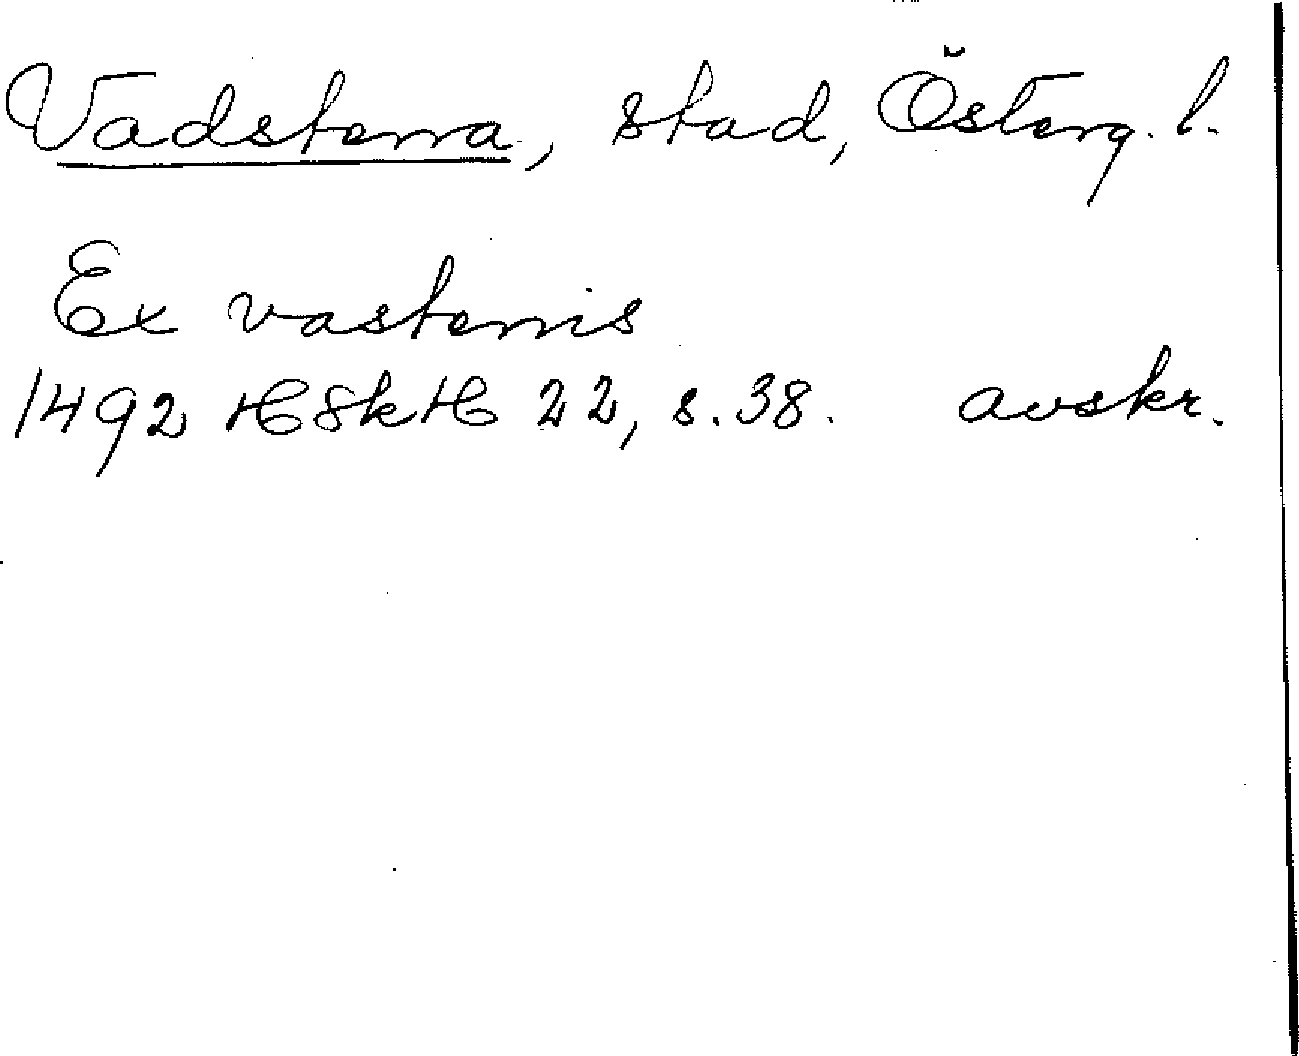 Vadstena, stad, Österg. l.
Ex vastenis
1492 HSkH 22, s. 38. avskr.